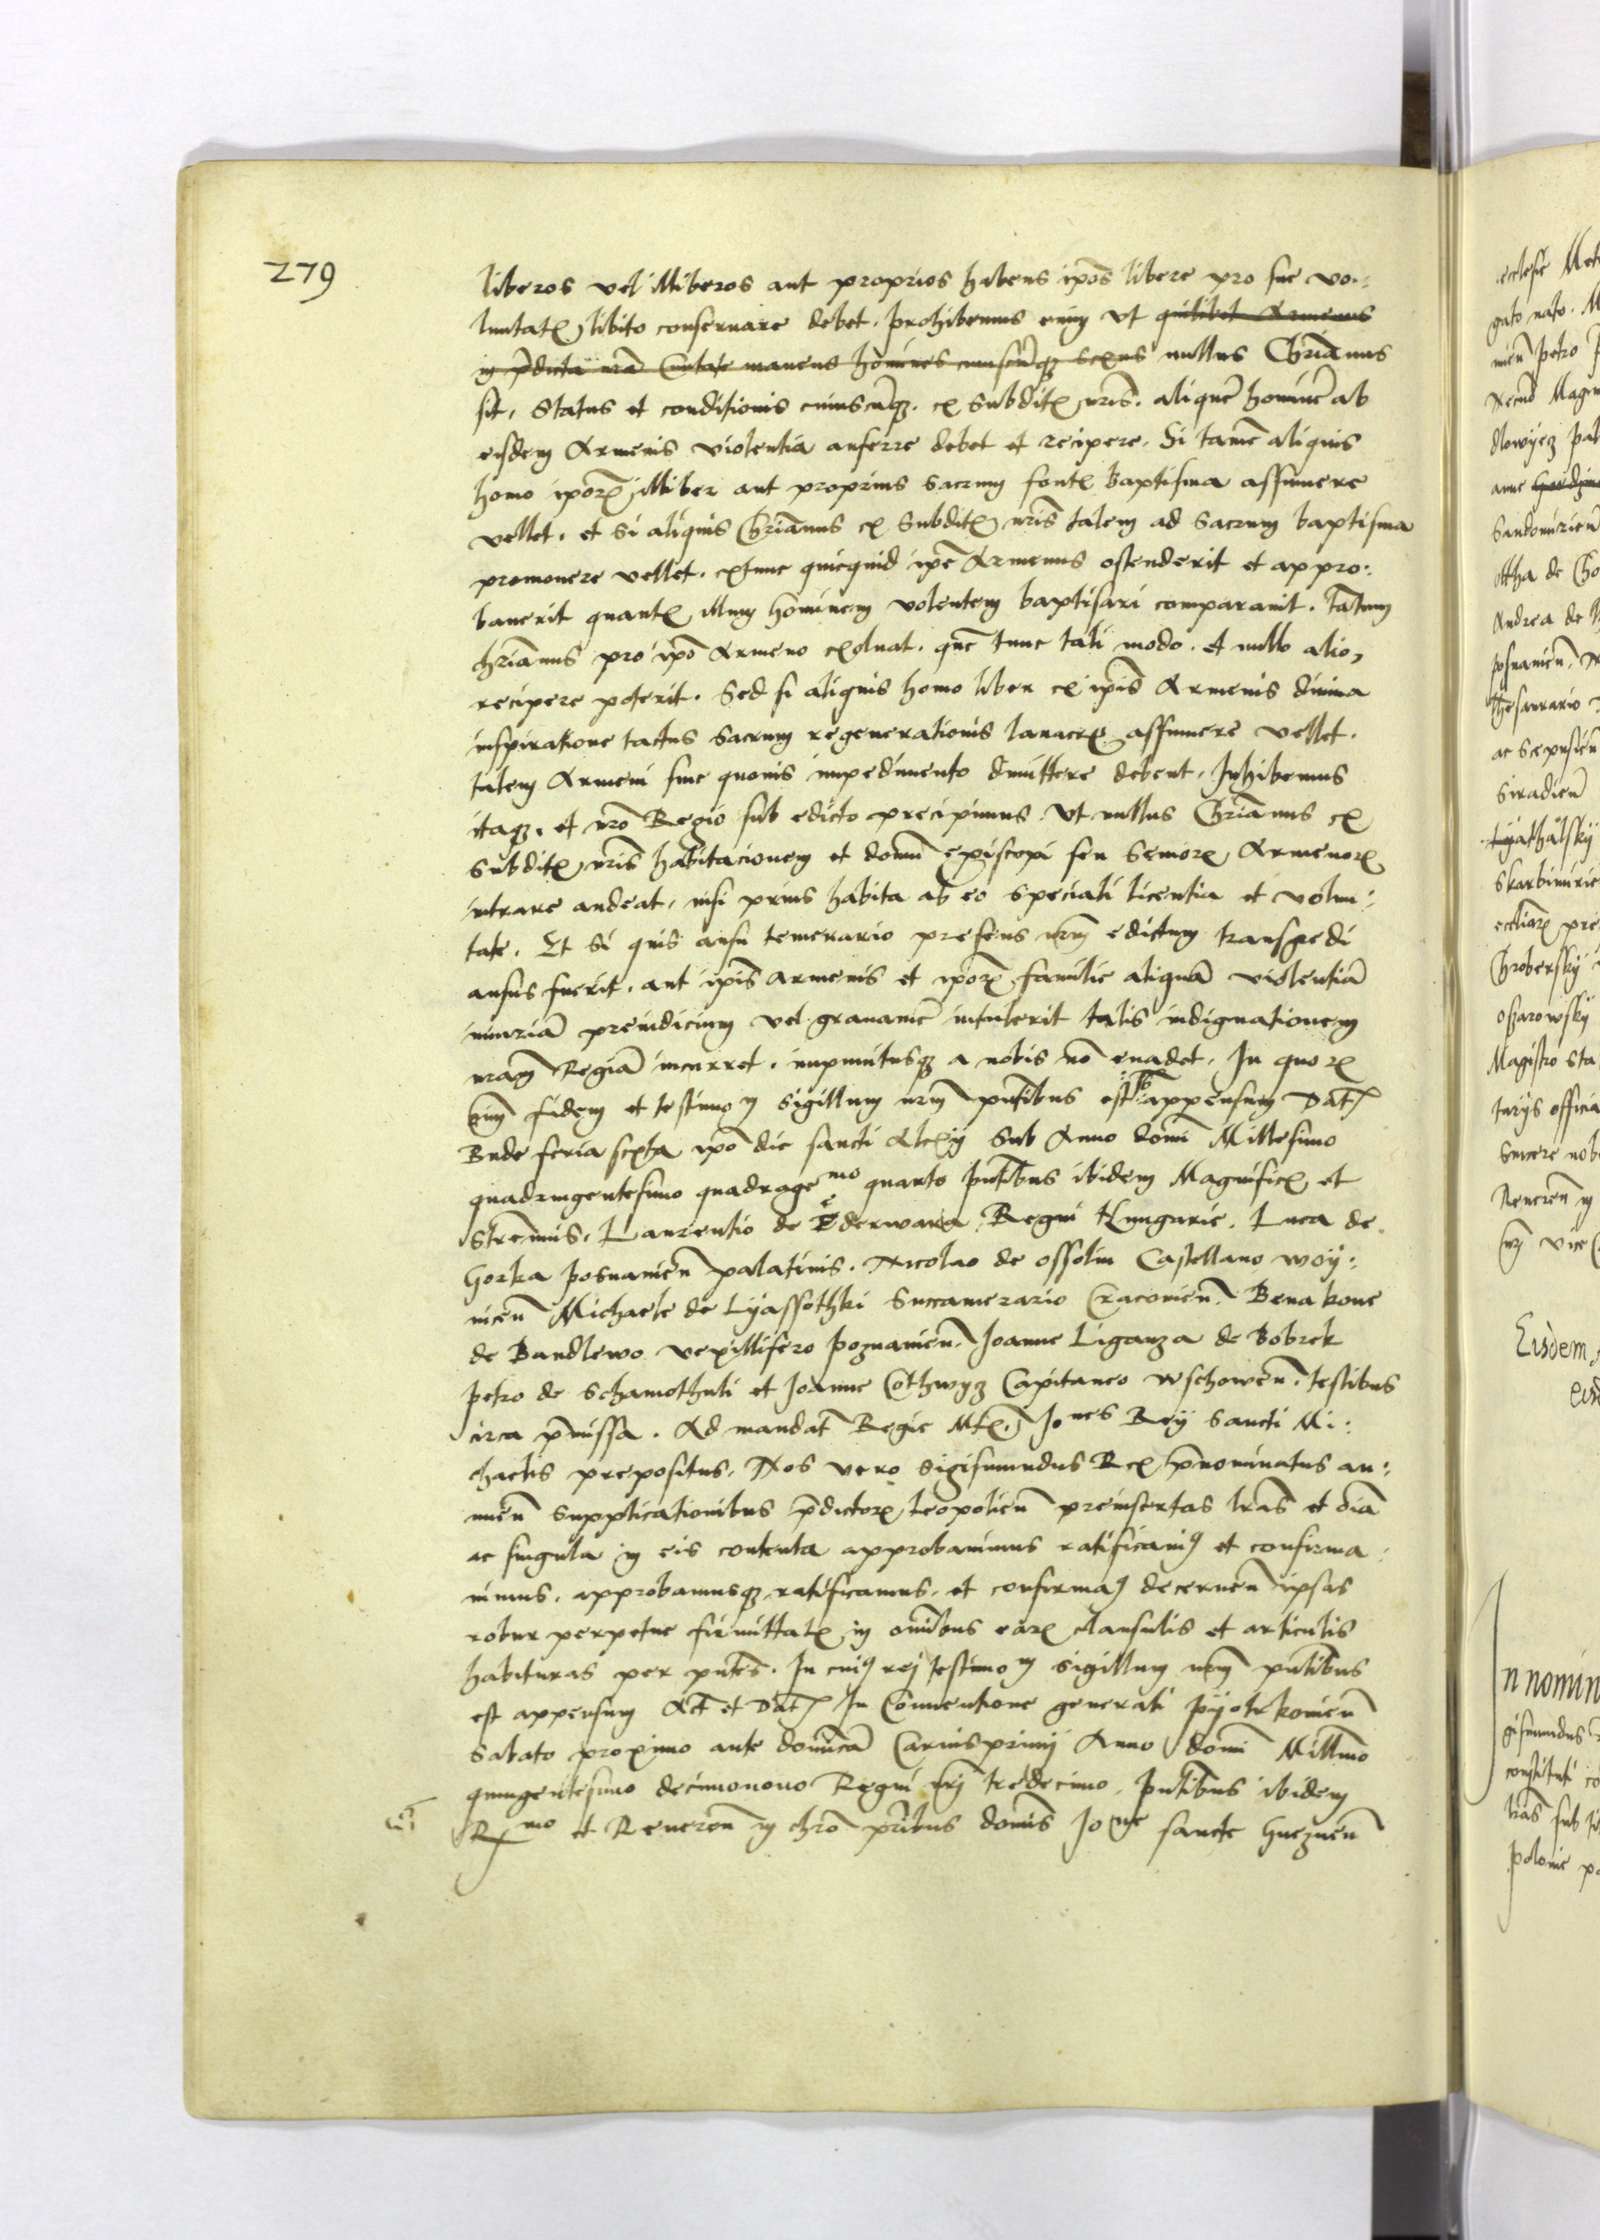 279
liberos vel illiberos aut proprios habens ipōs libere pro sue vo:
luntatꝭ libito conservare debet. prohibemus enim vt quilibet Armenus
in p̄dicta nrā Civitate manens homines cuiuscūqꝫ sexus nullus Chriānus
sit, Status et conditionis cuiuscūqꝫ. ex subditꝭ nrīs. aliquē hominē ab
eisdem Armenis violentia auferre debet et recipere. Si tamē aliquis
homo ipōrꝫ illiber aut proprius sacrum fontꝭ baptisma assumere
vellet. et si aliquis Chriānus ex subditꝭ nrīs talem ad sacrum baptisma
promovere vellet. extunc quicquid ipē Armenus ostenderit et appro:
baverit quantꝭ illum hominem volentem baptisari comparavit. tātum
chriānus pro ipō Armeno exolvat. quē tunc tali modo. et nullo alio,
recipere poterit. Sed si aliquis homo liber ex ipīs Armenis divina
inspiratione tactus sacrum regenerationis lavacrꝫ assumere vellet.
talem Armeni sine quovis impedimento dimittere debent, Inhibemus
itaqꝫ. et nrō Regio sub edicto precipimus Vt nullus Chriānus ex
subditꝭ nrīs habitacionem et domū episcopi seu seniorꝫ Armenorꝫ
intrare audeat, nisi prius habita ab eo speciali licentia et volun:
tate. Et si quis ausu temerario presens nrm̄ edictum transgredi
ausus fuerit. aut ipīs Armenis et ipōrꝫ familie aliquā violentiā
iniuriā preiudicium vel gravamē intulerit talis indignationem
nrām Regiā incurret. impunitusqꝫ a nobis nō evadet. In quorꝫ
fidem et testimom sigillum nrm̄ pn̄tibus est appensum Datꝫ
Bude feria sexta ipō die sancti Alexij Sub Anno domī Millesimo
quadringentesimo quadragemo quarto pn̄tibus ibidem Magnificꝭ et
Strennuis. Laurentio de Hederwara Regni Hungarie. Luca de
Gorka posnanien̄ palatinis. Nicolao de ossolin Castellano woy:
nicen̄ Michaele de Lyassothki Succamerario Cracovien̄. Benakone
de Bandlewo vexillifero poznanien̄. Joanne Liganza de Bobrek
petro de Schamothuli et Joanne Cothwyz Capitaneo wschowen̄. testibus
circa p̄missa. Ad mandatꝫ Regie Mtꝭ. Jones Rey sancti Mi:
chaelis prepositus. Nos vero Sigismundus Rex p̄nominatus an:
nuen̄ supplicationibus p̄dictorꝫ leopolien̄ preinsertas lrās et oīa
ac singula in eis contenta approbavimus ratificavimꝰ et confirma:
vimus. approbamusqꝫ ratificamus. et confirmamꝰ decernen̄ ipsas
robur perpetue firmittatꝭ in omībus earꝫ clausulis et articulis
habituras per pn̄tes. In cuiꝰ rei testimom sigillum nrm̄ pn̄tibus
est appensum Act̄ et Datꝫ In Conventione generali pyotrkovien̄
Sabato proximo ante domīcā Carnisprivij Anno domī Millm̄o
quingentesimo decimonono Regni nrī tredecimo. pn̄tibus ibidem
Rmo et Reveren̄ in chrō prībus domīs Jone sancte Gneznen̄